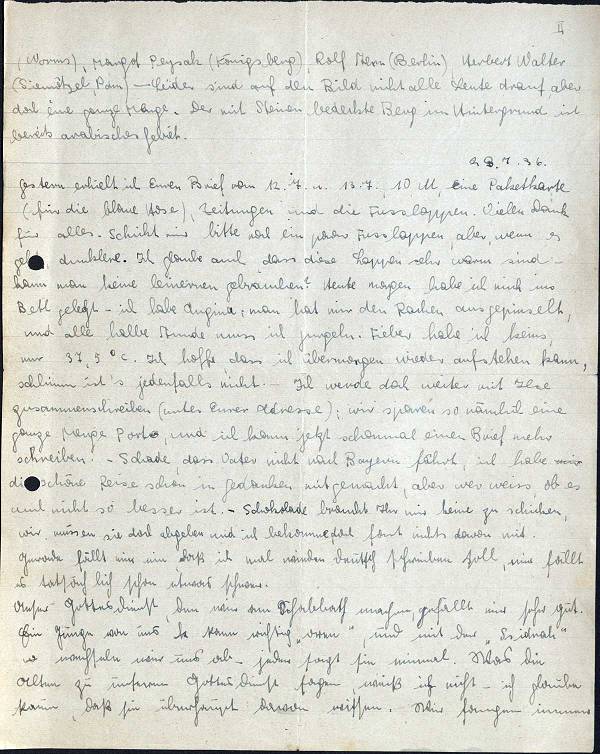 II
(Worms), Margot Peysak (Königsberg), Rolf Stern (Berlin) Herbert Walter
(Pom) – Leider sind auf den Bild nicht alle Leute drauf, aber
doch eine ganze Menge. Der mit Steinen bedeckte Berg im Hintergrund ist
bereits arabisches Gebiet.
23.7.36.
Gestern erhielt ich Euren Brief vom 12.7. u. 13.7., 10 M, eine Paketkarte
(für die blaue Hose), Zeitungen und die Fusslappen. Vielen Dank
für alles. – Schickt mir bitte noch ein paar Fusslappen, aber, wenn es
geht, dunklere. Ich glaube auch dass diese Lappen sehr warm sind –
kann man keine leinernen gebrauchen? Heute morgen habe ich mich ins
Bett gelegt – ich habe Angina; man hat mir den Rachen ausgepinselt,
und alle halbe Stunde muss ich gurgeln. Fieber habe ich keins,
nur 37,5°C. Ich hoffe dass ich übermorgen wieder aufstehen kann,
schlimm ist's jedenfalls nicht. – Ich werde doch weiter mit Ilse
zusammenschreiben (unter Eurer Adresse); wir sparen so nämlich eine
ganze Menge Porto, und ich kann jetzt schonmal einen Brief mehr
schreiben. – Schade, dass Vater nicht nach Bayern fährt, ich habe mir
die schöne Reise schon in Gedanken mitgemacht, aber wer weiss ob es
und nicht so besser ist. – Schokolade braucht Ihr mir keine zu schicken,
wir müssen sie doch abgeben und ich bekomme doch sonst nichts davon mit.
Gerade fällt mir ein daß ich mal wieder deutsch schreiben soll, mir fällt
es tatsächlich schon etwas schwer.
Unser Gottesdienst den wir am Schabbath machen, gefällt mir sehr gut.
Ein Junge von uns kann richtig "oren" und mit der "Sidrah"
so wechseln wir uns ab – jeder sagt sie einmal. Was die
Alten zu unserem Gottesdienst sagen, weiß ich nicht – ich glaube
kaum, daß sie überhaupt davon wissen. Wir fangen immer